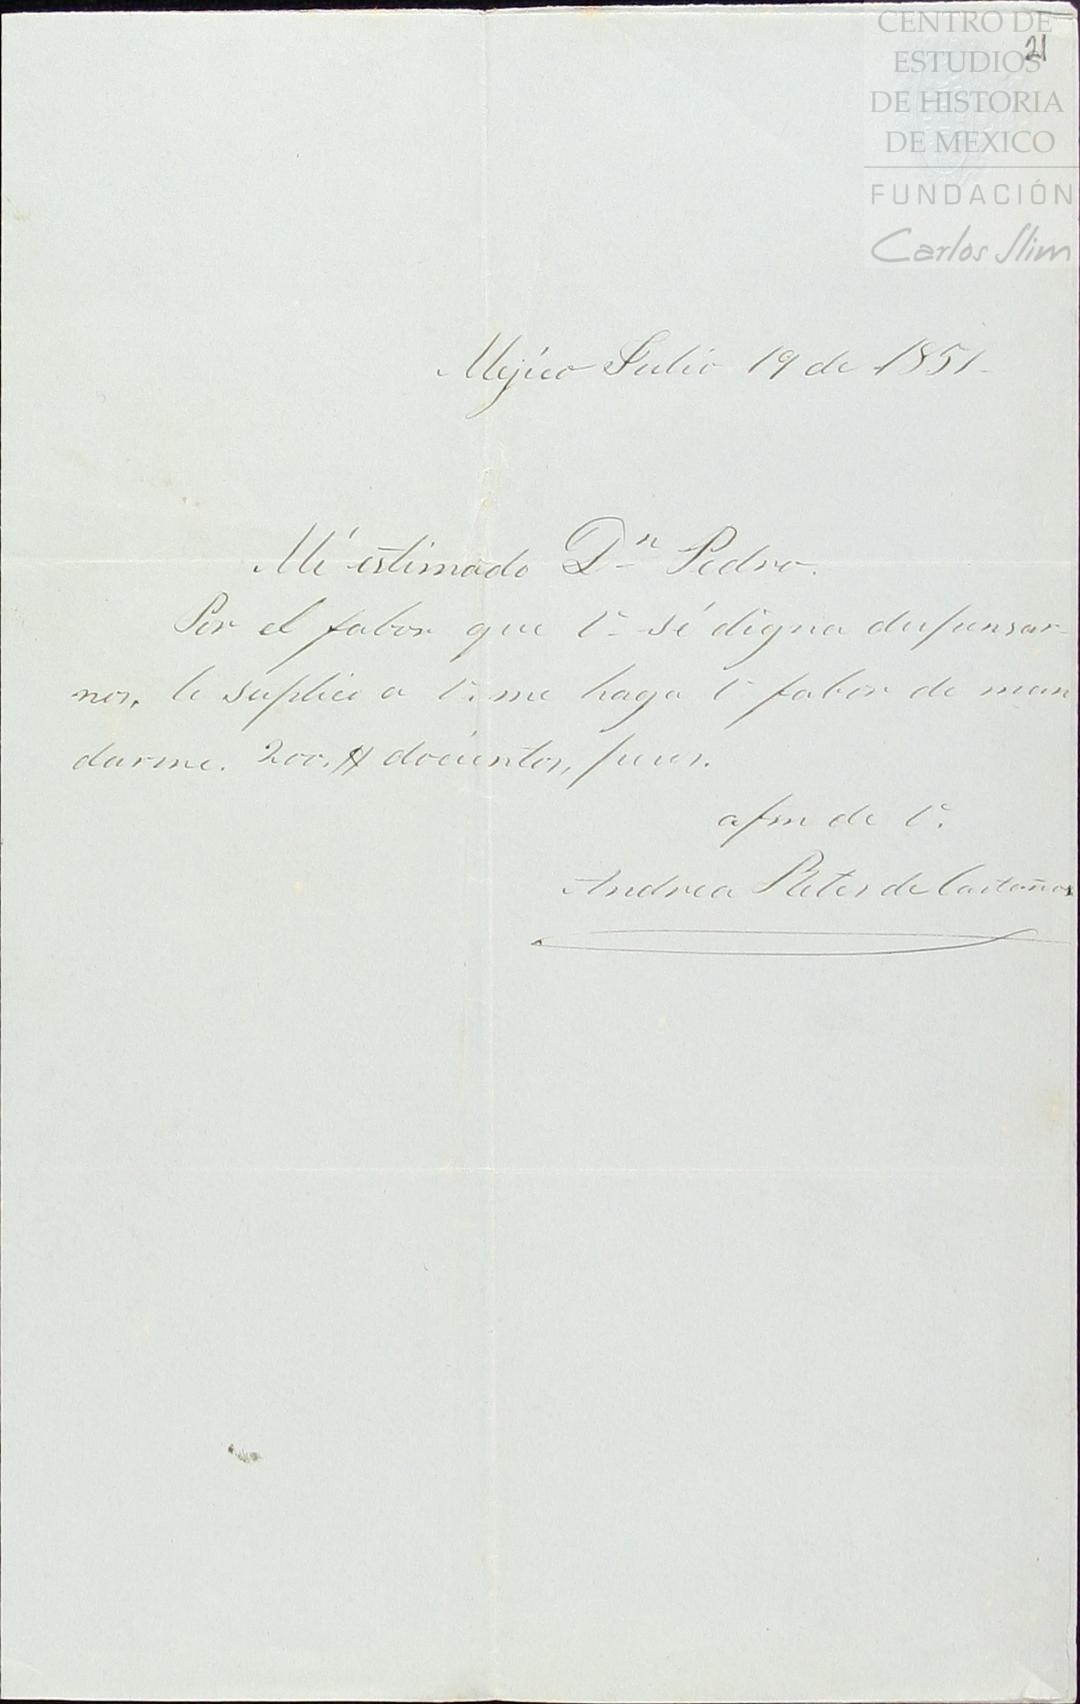 CENTRO DE
ESTUDIOS
DE HISTORIA
DE MEXICO
FUNDACIÓN
Carlos Slim
21
Méjico Julio 19 de 1851
Mi estimado Dn Pedro.
Por el fabor que V. sé digna dispensar-
nos, le suplico a V. me haga V. fabor de man
darme. 200. $ docientos, pesos.
afma de V.
Andrea Retes de Castaños